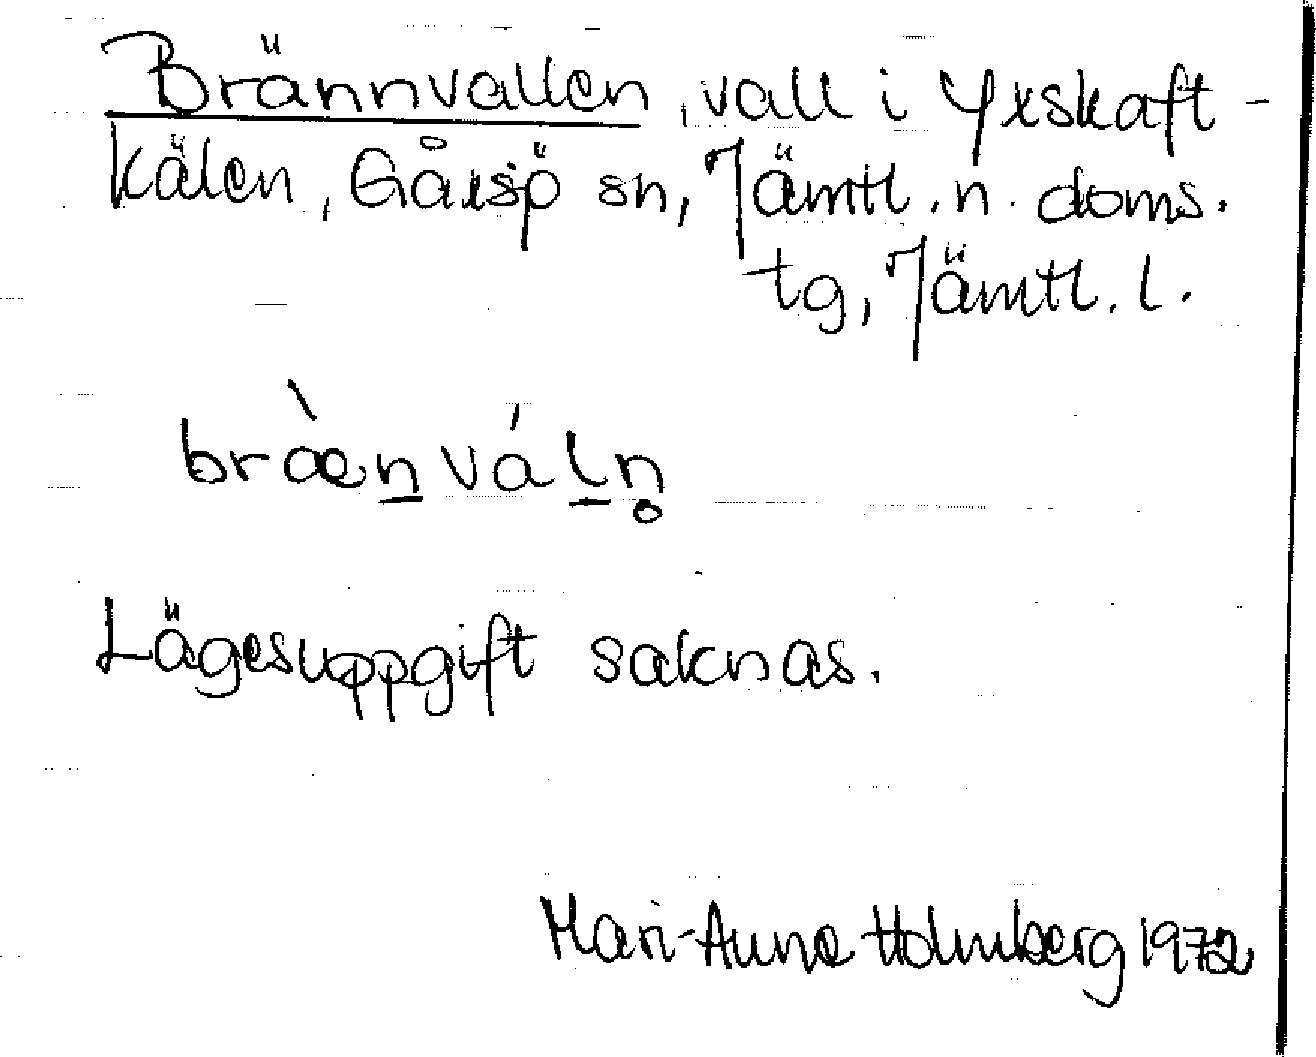 Brännvallen, vall i Yxskaft-
kälen, Gåxsjö sn, Jämtl. n. doms.
tg, Jämtl. l.
bræ̀n̲vál̲n̥
Lägesuppgift saknas.
Mari-Anne Holmberg 1972